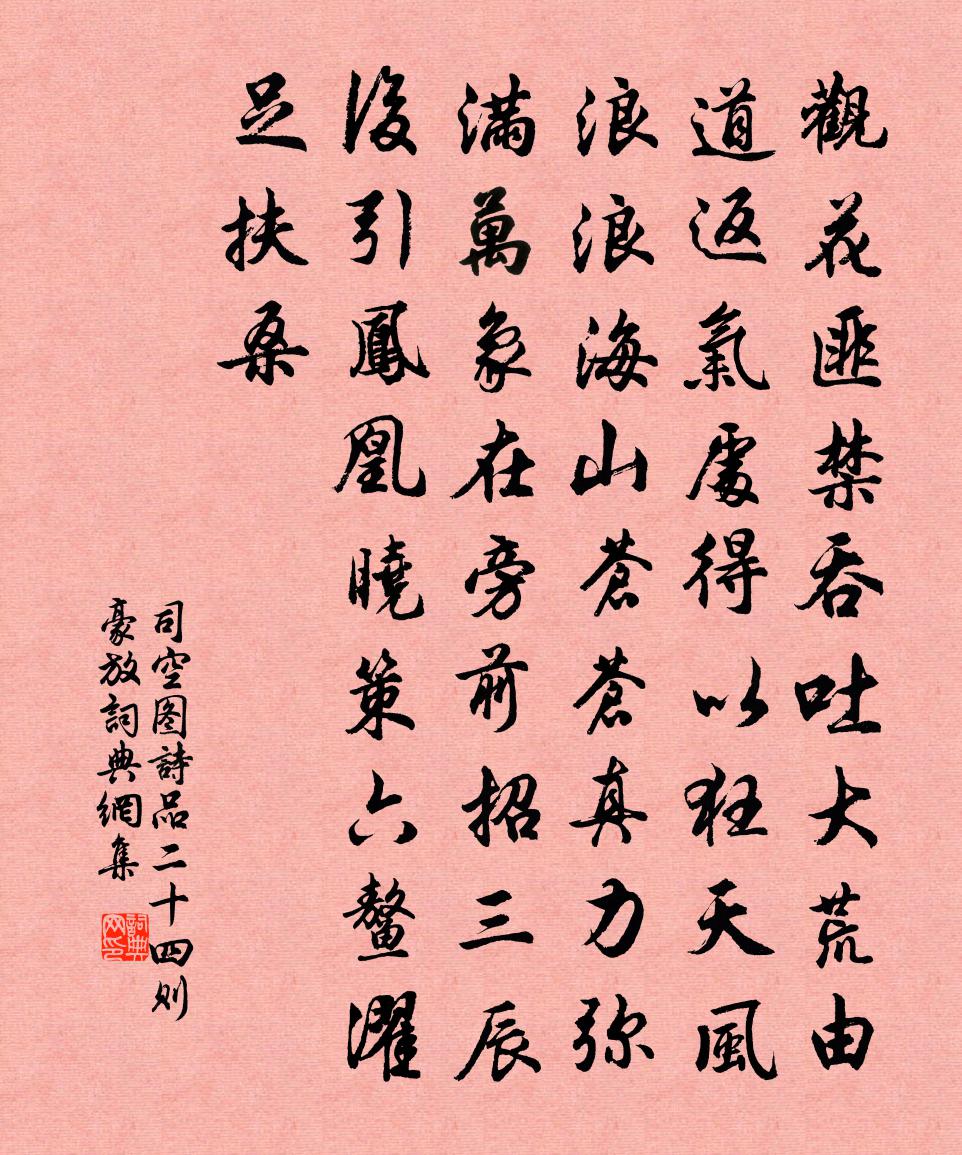 觀花匪禁吞吐大荒由
道返氣處得以狂天風
浪浪海山蒼蒼真力弥
滿萬象在旁前招三辰
後引鳳凰曉策六鼇濯
足扶桑
司空图詩品二十四则
豪放詞典網集
詞典网印